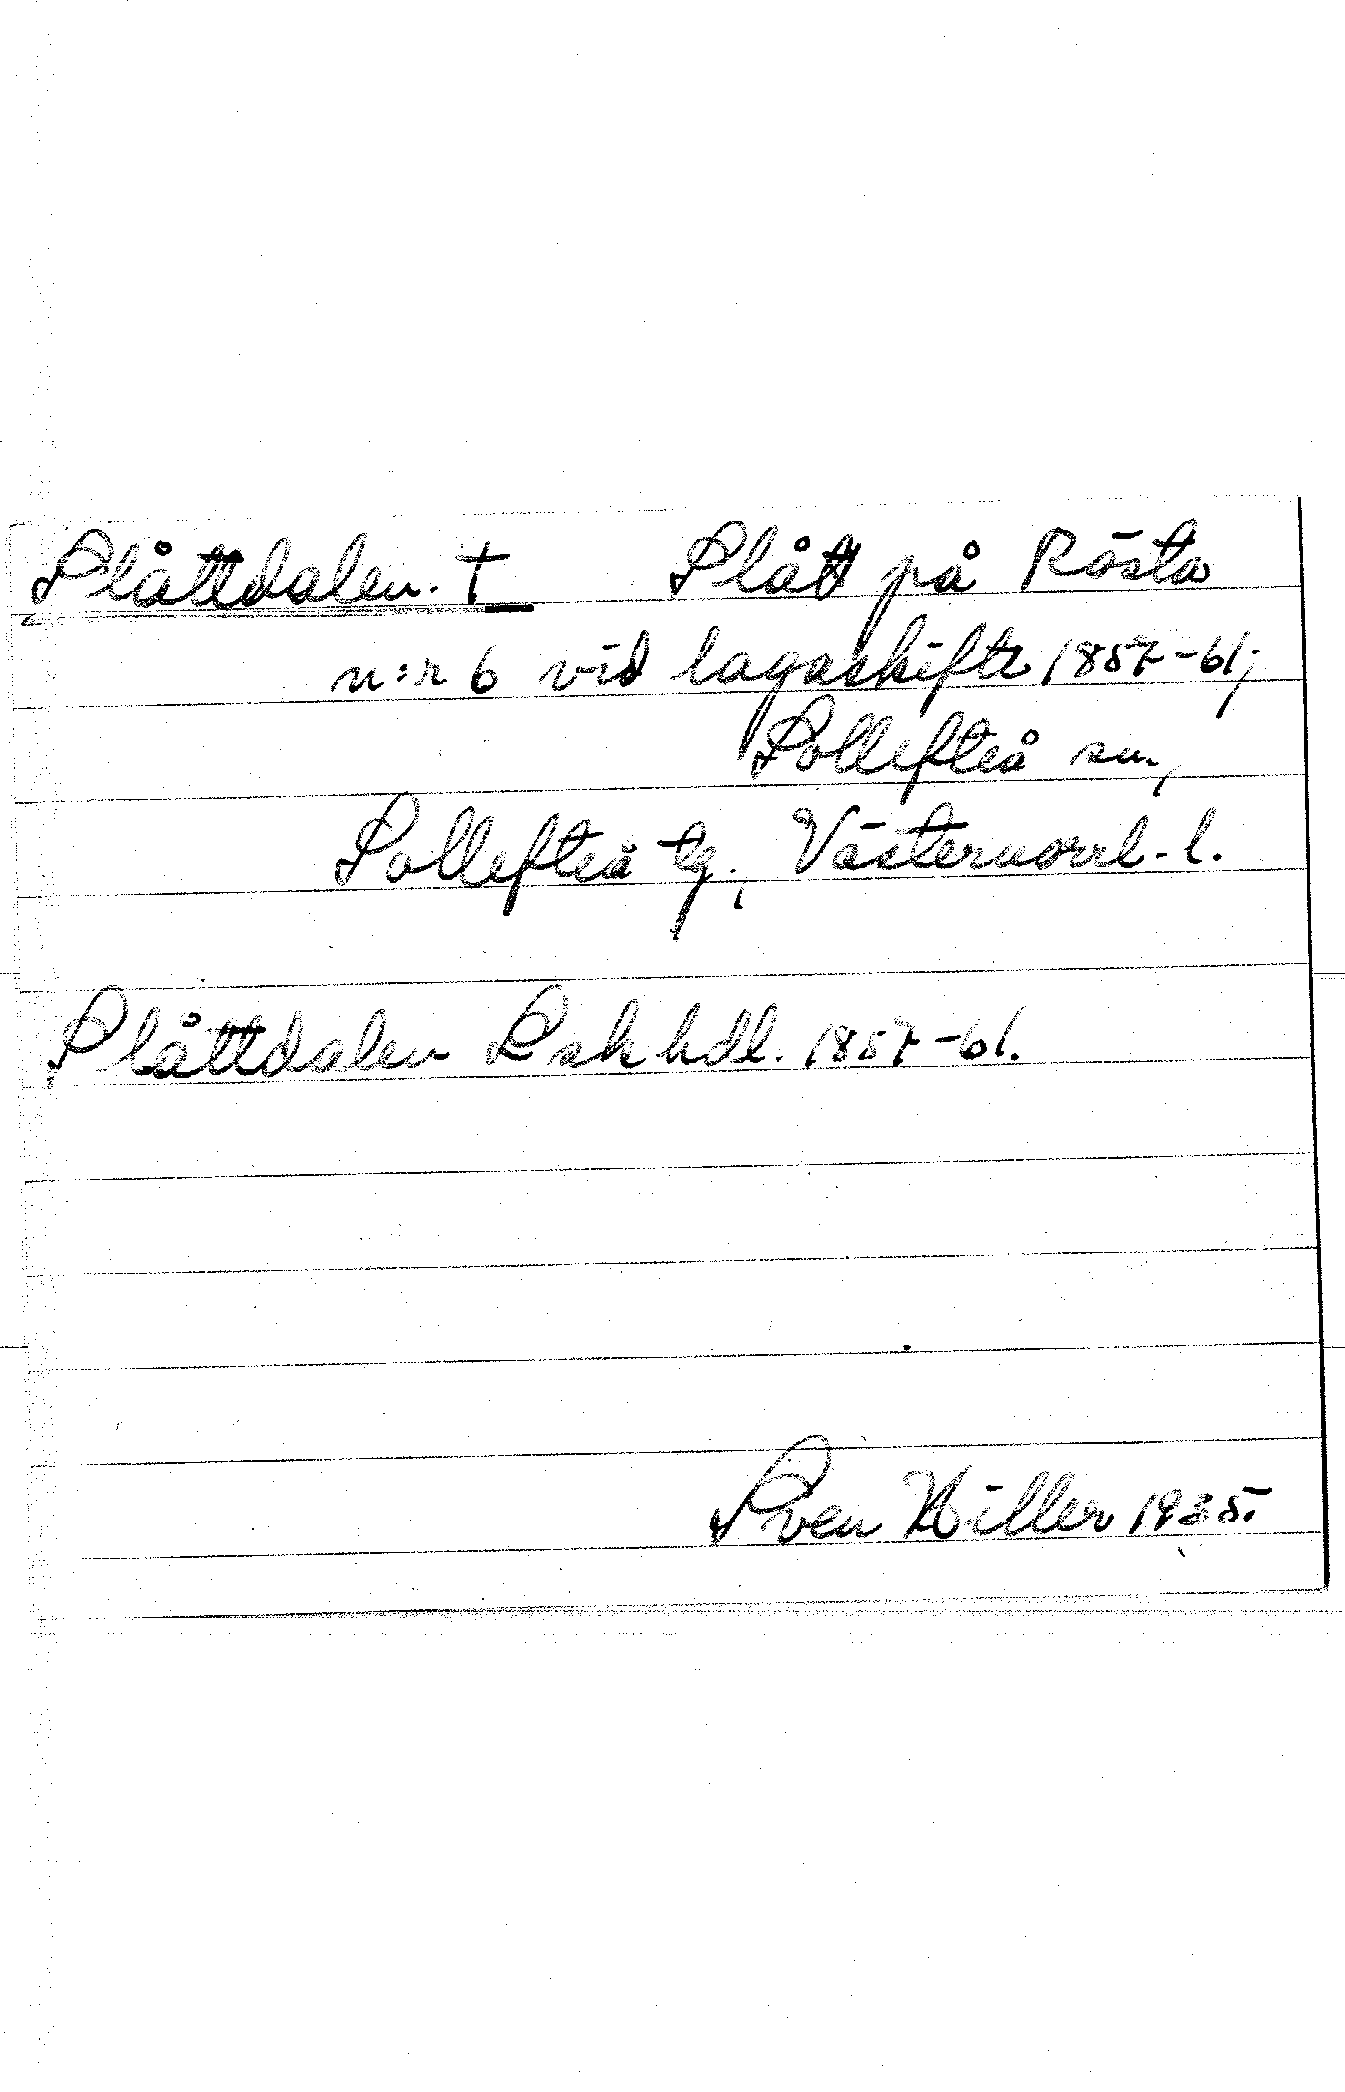 Slåttdalen. † Slått på Rösta
n:r 6 vid lagaskifte 1857-61;
Sollefteå sn.,
Sollefteå tg., Västernorrl. l.
Slåttdalen Lskhdl. 1857-61.
Sven Hiller 1935.